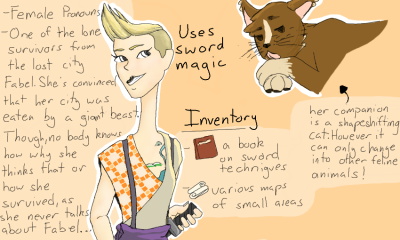 -Female Pronouns
-One of the lone
survivors from
the lost city
Fabel. She's convinced
that her city was
eaten by a giant beast.
Though, no body knows
how why she
thinks that or
how she
survived, as
she never talks
about Fabel...
Uses
sword
magic
Inventory
a book
on sword
techniques
various maps
of small areas
her companion
is a shapeshifting
cat. However it
can only change
into other feline
animals!